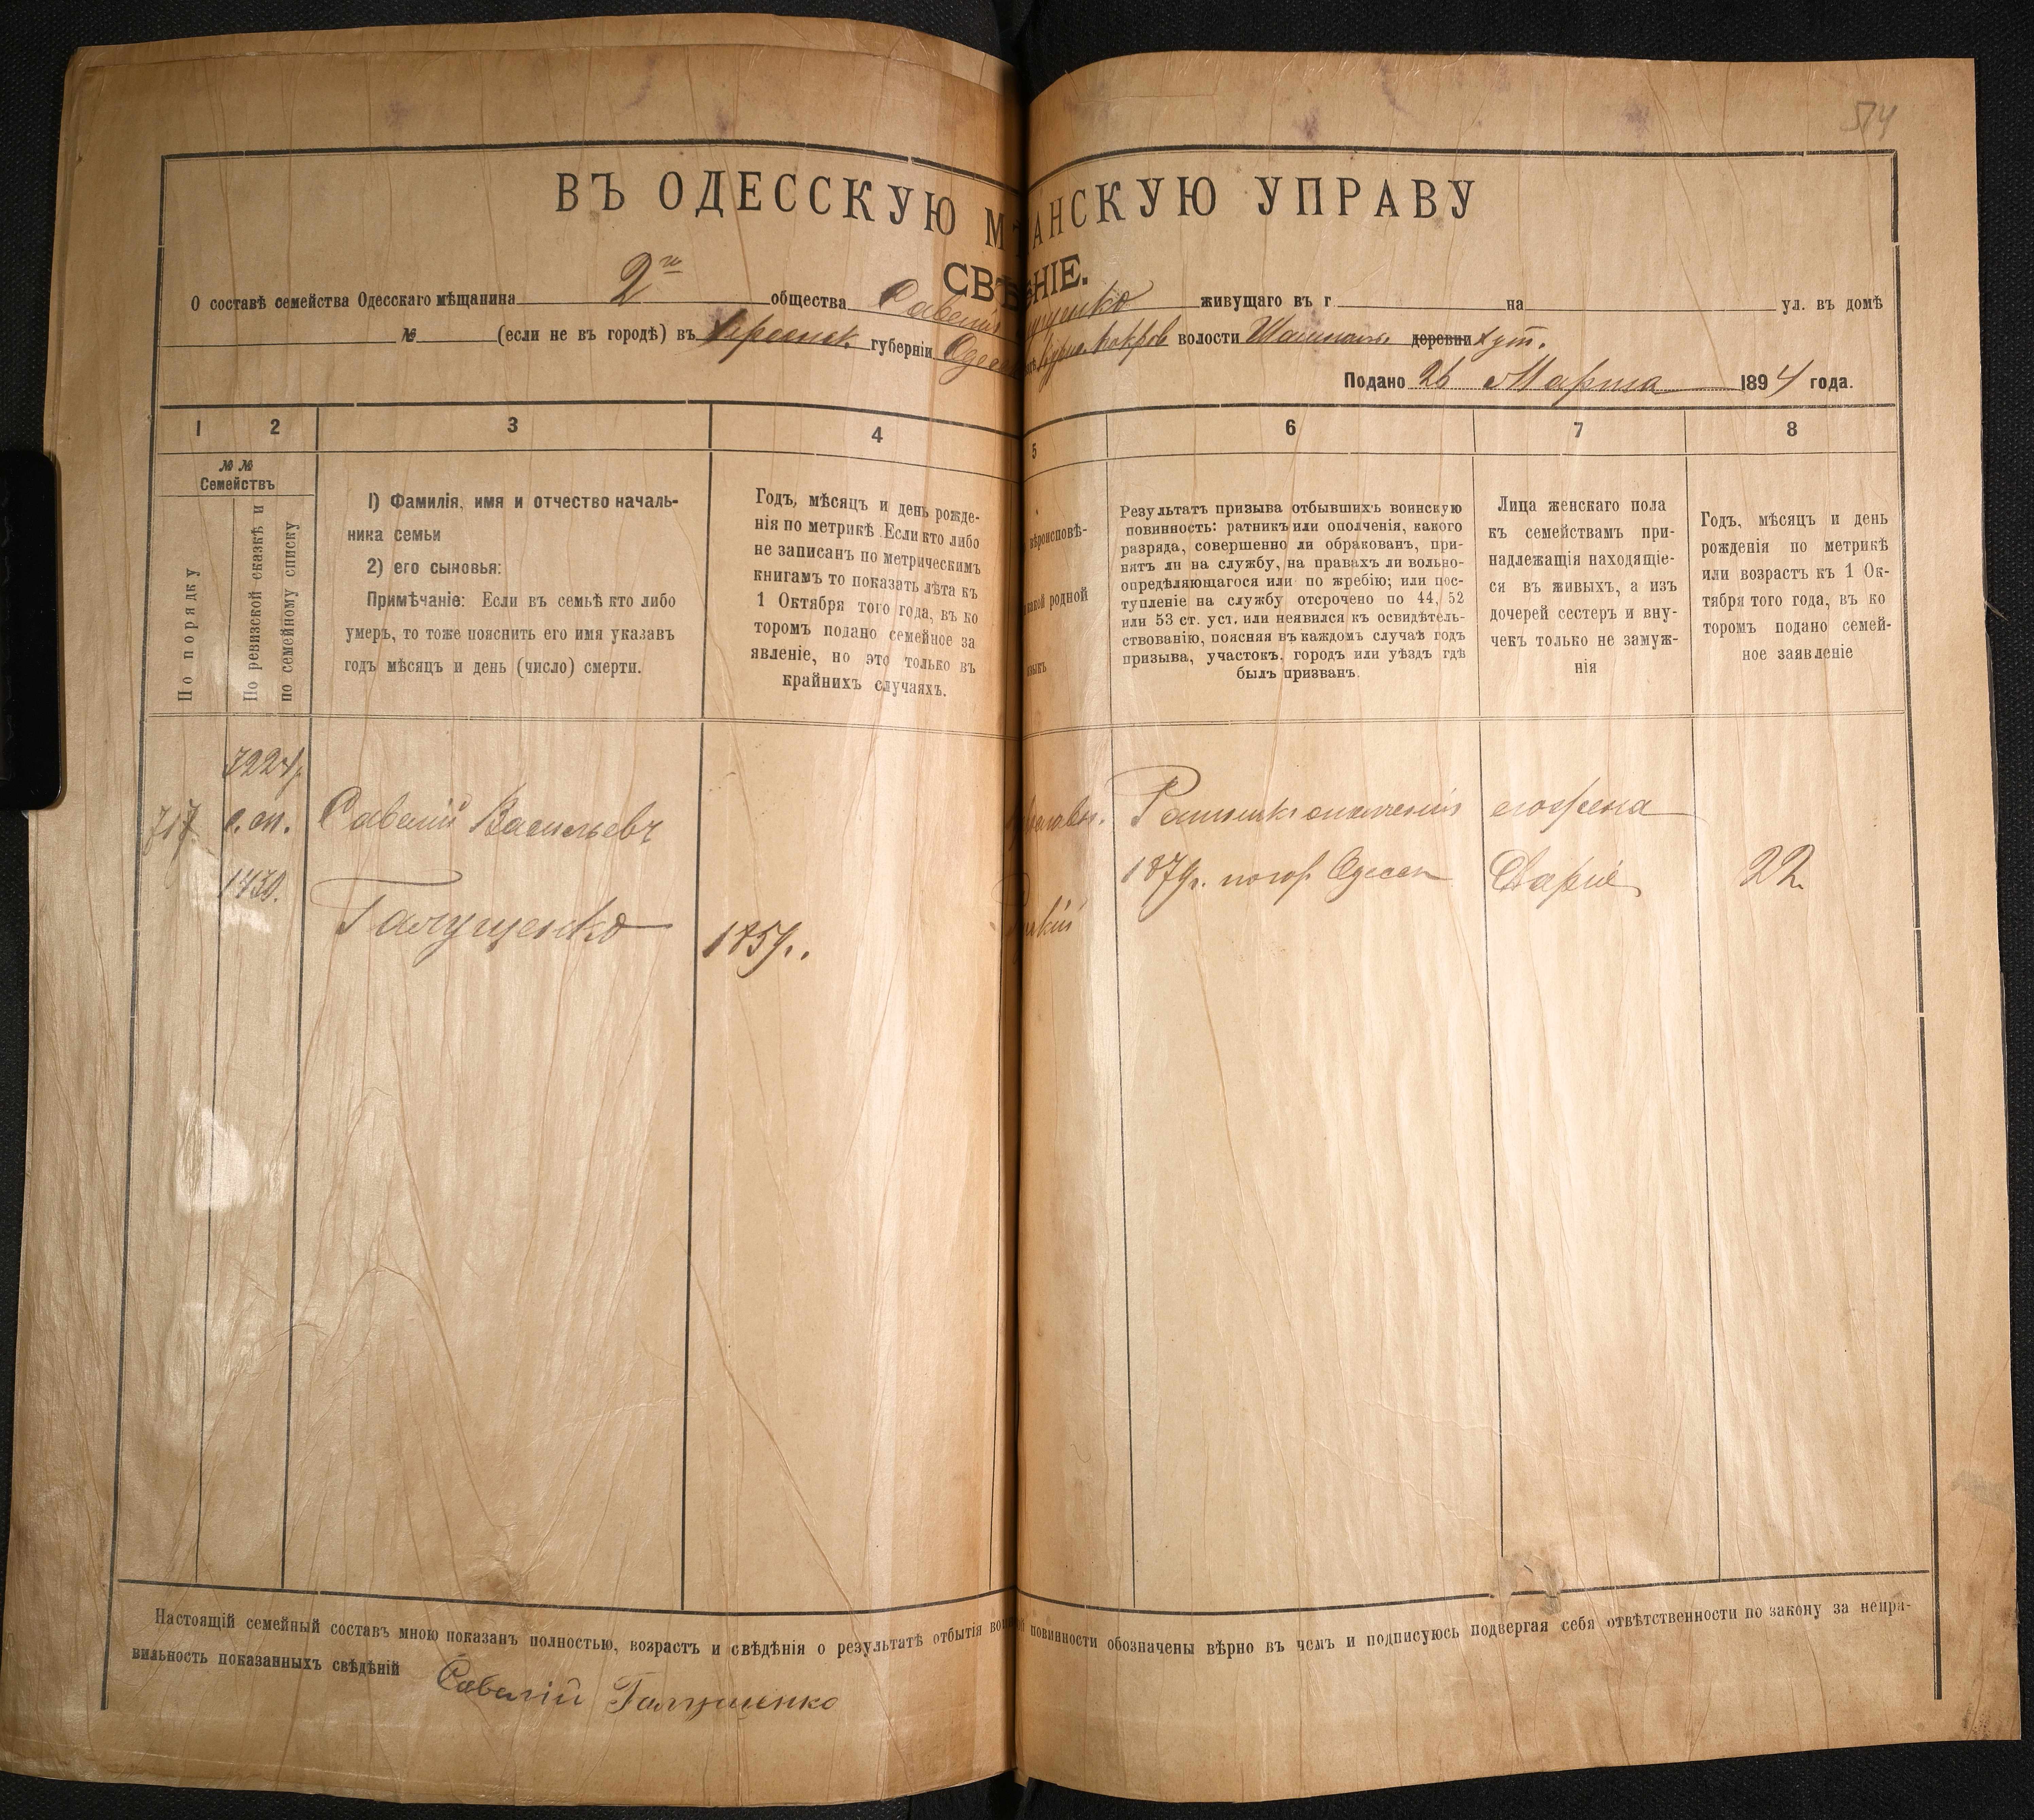 514
ВЪ ОДЕССКУЮ М АНСКУЮ УПРАВУ
СВѢ НІЕ.
О составѣ семейства Одесскаго мѣщанина 2го общества Савелія живущаго въ г на ул. въ домѣ
№ (если не въ городѣ) въ Херсонск. губерніи Одес Покров волости деревни хут.
Подано 26 Марта 1894 года.
1 2 3 4 5 6 7 8
№ №
Семействъ
По порядку
По ревизской сказкѣ и
по семейному списку
1) Фамилія, имя и отчество началь-
ника семьи
2) его сыновья:
Примѣчаніе: Если въ семьѣ кто либо
умеръ, то тоже пояснить его имя указавъ
годъ мѣсяцъ и день (число) смерти.
Годъ, мѣсяцъ и день рожде-
нія по метрикѣ. Если кто либо
не записанъ по метрическимъ
книгамъ то показать лѣта къ
1 Октября того года, въ ко
торомъ подано семейное за
явленіе, но это только въ
крайнихъ случаяхъ.
вѣроисповѣ-
какой родной
языкъ
Результатъ призыва отбывшихъ воинскую
повинность: ратникъ или ополченія, какого
разряда, совершенно ли обракованъ, при-
нятъ ли на службу, на правахъ ли вольно-
опредѣляющагося или по жребію; или пос-
тупленіе на службу отсрочено по 44, 52
или 53 ст. уст. или неявился къ освидѣтель-
ствованію, поясняя въ каждомъ случаѣ годъ
призыва, участокъ, городъ или уѣздъ гдѣ
былъ призванъ.
Лица женскаго пола
къ семействамъ при-
надлежащія находящіе-
ся въ живыхъ, а изъ
дочерей сестеръ и вну-
чекъ только не замуж-
нія
Годъ, мѣсяцъ и день
рожденія по метрикѣ
или возрастъ къ 1 Ок-
тября того года, въ ко
торомъ подано семей-
ное заявленіе
717 с. сп. Савелій Васильевъ Ратникъ ополченія его жена
1430. Галущенко 1857г. 187 г. по гор. Одессѣ Дарія 22
Настоящій семейный составъ мною показанъ полностью, возрастъ и свѣдѣнія о результатѣ отбытія воинской повинности обозначены вѣрно въ чемъ и подписуюсь подвергая себя отвѣтственности по закону за непра-
вильность показанныхъ свѣдѣній Савелій Галущенко